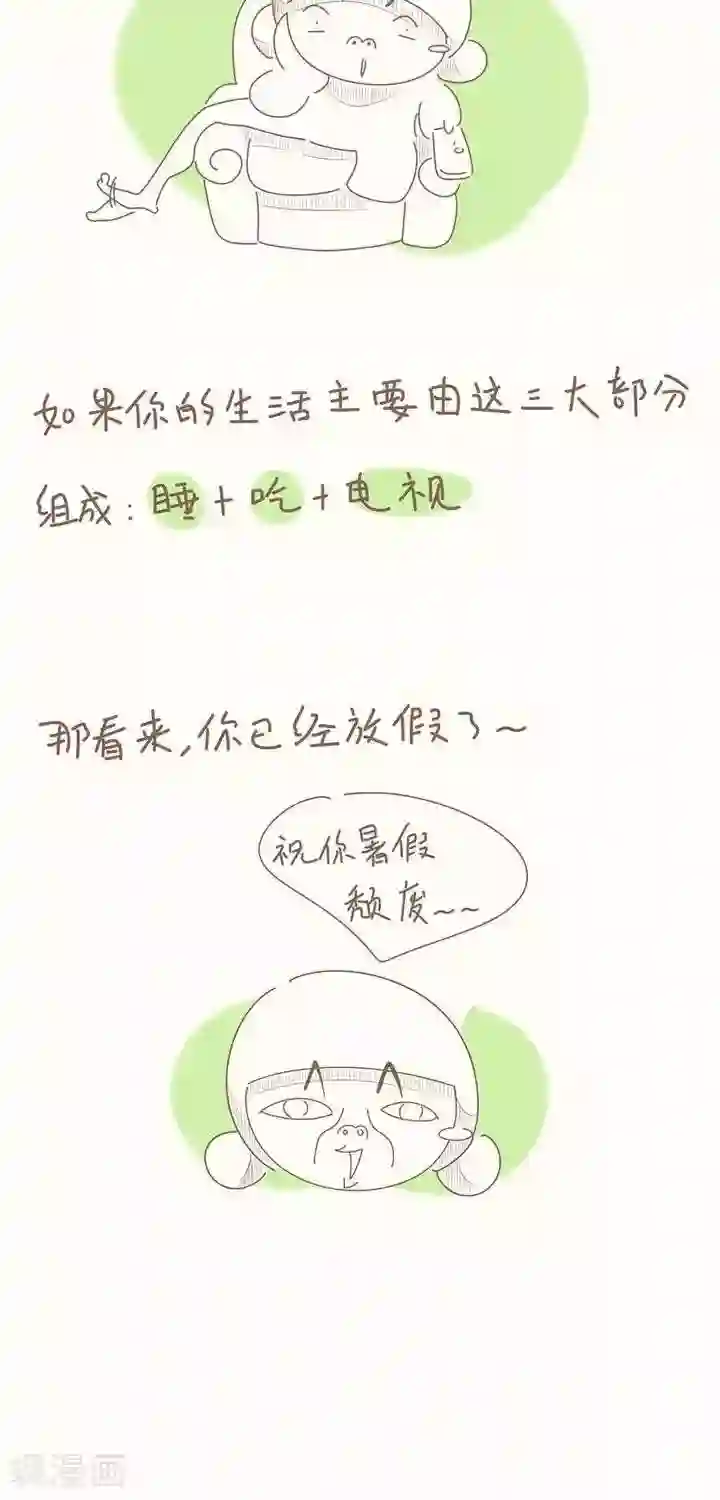 如果你的生活主要由这三大部分
组成：睡+吃+电视
那看来，你已经放假了~
祝你暑假
颓废~~
漫画